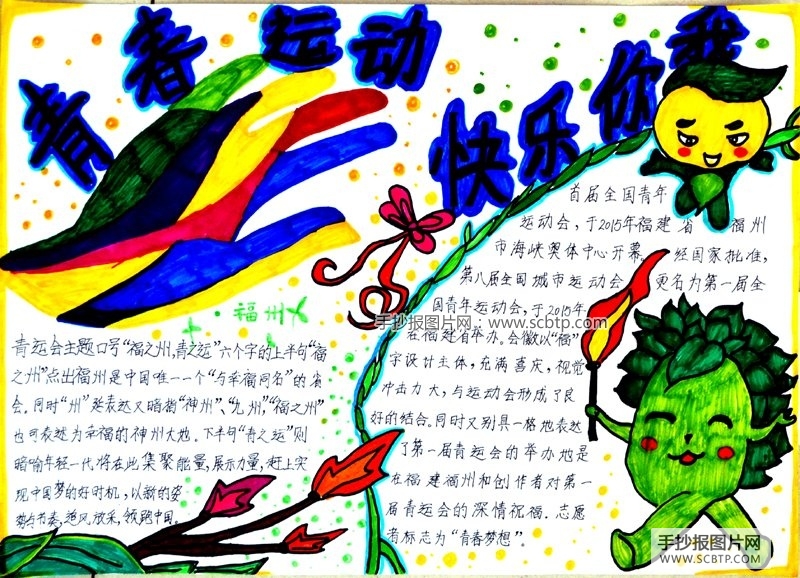 青春运动
快乐你我
首届全国青年
运动会，于2015年福建省 福州
市海峡奥体中心开幕 经国家批准，
第八届全国城市运动会 更名为第一届全
国青年运动会，于2015年
在福建省举办。会徽以“福”
字设计主体，充满喜庆，视觉
冲击力大，与运动会形成了良
好的结合。同时又别具一格地表达
了第一届青运会的举办地是
在福建福州和创作者对第一
届青运会的深情祝福。志愿
者标志为“青春梦想”。
福州
青运会主题口号“福之州，青之运”六个字的上半句“福
之州”点出福州是中国唯一一个“与幸福同名”的省
会。同时“州”是表达又暗指“神州”、“九州”，“福之州”
也可表达为幸福的神州大地。下半句“青之运”则
暗喻年轻一代将在此集聚能量，展示力量，赶上实
现中国梦的好时机，以新的姿
势与节奏，追风放采，领跑中国。
手抄报图片网：www.scbtp.com
手抄报图片网
WWW.SCBTP.COM